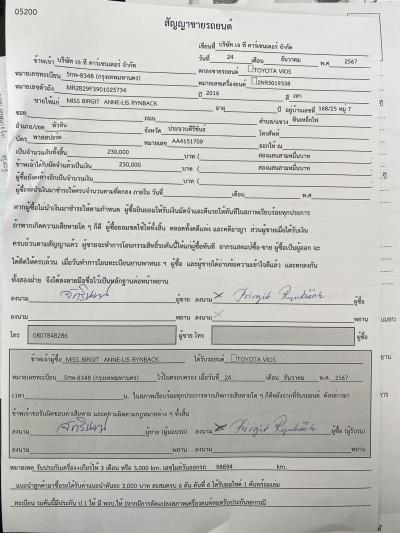 05200
สัญญาขายรถยนต์
เขียนที่ บริษัท เจ ที คาร์เซนเตอร์ จำกัด
วันที่ 24 เดือน ธันวาคม พ.ศ 2567
ข้าพเจ้า บริษัท เจ ที คาร์เซนเตอร์ จำกัด ตกลงขายรถยนต์ TOYOTA VIOS
หมายเลขทะเบียน 5กพ-8348 (กรุงเทพมหานคร) หมายเลขเครื่องยนต์ 2NR5019338
หมายเลขตัวถัง MR2B29F3901025734 ปี 2016 สี เทา
ขายให้แก่ MISS BIRGIT ANNE-LIS RYNBACK อายุ ปี อยู่บ้านเลขที่ 168/25 หมู่ 7
ซอย ถนน ตำบล/แขวง หินเหล็กไฟ
อำนาจ/เขต หัวหิน จังหวัด ประจวบคีรีขันธ์ โทรศัพท์
บัตร พาสสปอร์ต หมายเลข AA4151709 ออกให้ ณ
เป็นจำนวนเงินทั้งสิ้น 230,000 บาท ( สองแสนสามหมื่นบาท
ข้าพเจ้าได้รับมัดจำแล้วเป็นเงิน 230,000 บาท ( สองแสนสามหมื่นบาท
ผู้ซื้อยังคงค้างอีกเป็นจำนวนเงิน บาท (
ผู้ซื้อจะนำเงินมาชำระให้ครบจำนวนตามที่ตกลง ภายใน วันที่ เดือน พ.ศ
หากผู้ซื้อไม่นำเงินมาชำระให้ตามกำหนด ผู้ซื้อยินยอมให้ริบเงินมัดจำและคืนรถให้ทันทีในสภาพเรียบร้อยทุกประการ
ถ้าหากเกิดความเสียหายใด ๆ ก็ดี ผู้ซื้อยอมชดใช้ให้ทั้งสิ้น ตลอดทั้งคดีแพ่ง และคดีอาญา ส่วนผู้ขายเมื่อได้รับเงิน
ครบถ้วนตามสัญญาแล้ว ผู้ขายจะทำการโอนกรรมสิทธิ์รถคันนี้ให้แก่ผู้ซื้อทันที อากรแสตมป์ซื้อ-ขาย ผู้ซื้อเป็นผู้ออก
ทั้งสองฝ่าย จึงได้ลงลายมือชื่อไว้เป็นหลักฐานต่อหน้าพยาน
ลงนาม ผู้ขาย ลงนาม Birgit Rynbäck ผู้ซื้อ
ลงนาม พยาน ลงนาม พยาน
โทร 0807848286 ผู้ขาย โทร ผู้ซื้อ
ข้าพเจ้าผู้ซื้อ MISS BIRGIT ANNE-LIS RYNBACK ได้รับรถยนต์ TOYOTA VIOS
หมายเลขทะเบียน 5กพ-8348 (กรุงเทพมหานคร) ไว้ในครอบครอง เมื่อวันที่ 24 เดือน ธันวาคม พ.ศ. 2567
เวลา น. ในสภาพเรียบร้อยทุกประการหากเกิดการเสียหายใด ๆ
ข้าพเจ้าขอรับผิดชอบค่าเสียหาย และความผิดตามกฎหมายต่าง ๆ ทั้งสิ้น
ลงนาม ผู้ขาย (ผู้มอบรถ) ลงนาม Birgit Rynbäck ผู้ซื้อ (ผู้รับรถ)
ลงนาม พยาน ลงนาม พยาน
หมายเหตุ รับประกันเครื่อง+เกียร์ให้ 3 เดือน หรือ 3,000 km. เลขไมล์วันออกรถ 98894 km.
แนะนำลูกค้ามาซื้อรถได้รับค่าแนะนำคันละ 3,000 บาท สะสมครบ 6 คัน คันที่ 6 ได้รับมอไซค์ 1 คันพร้อมเล่ม
ทะเบียน รถคันนี้มีประกัน ป.1 ให้ มี พรบ.ให้